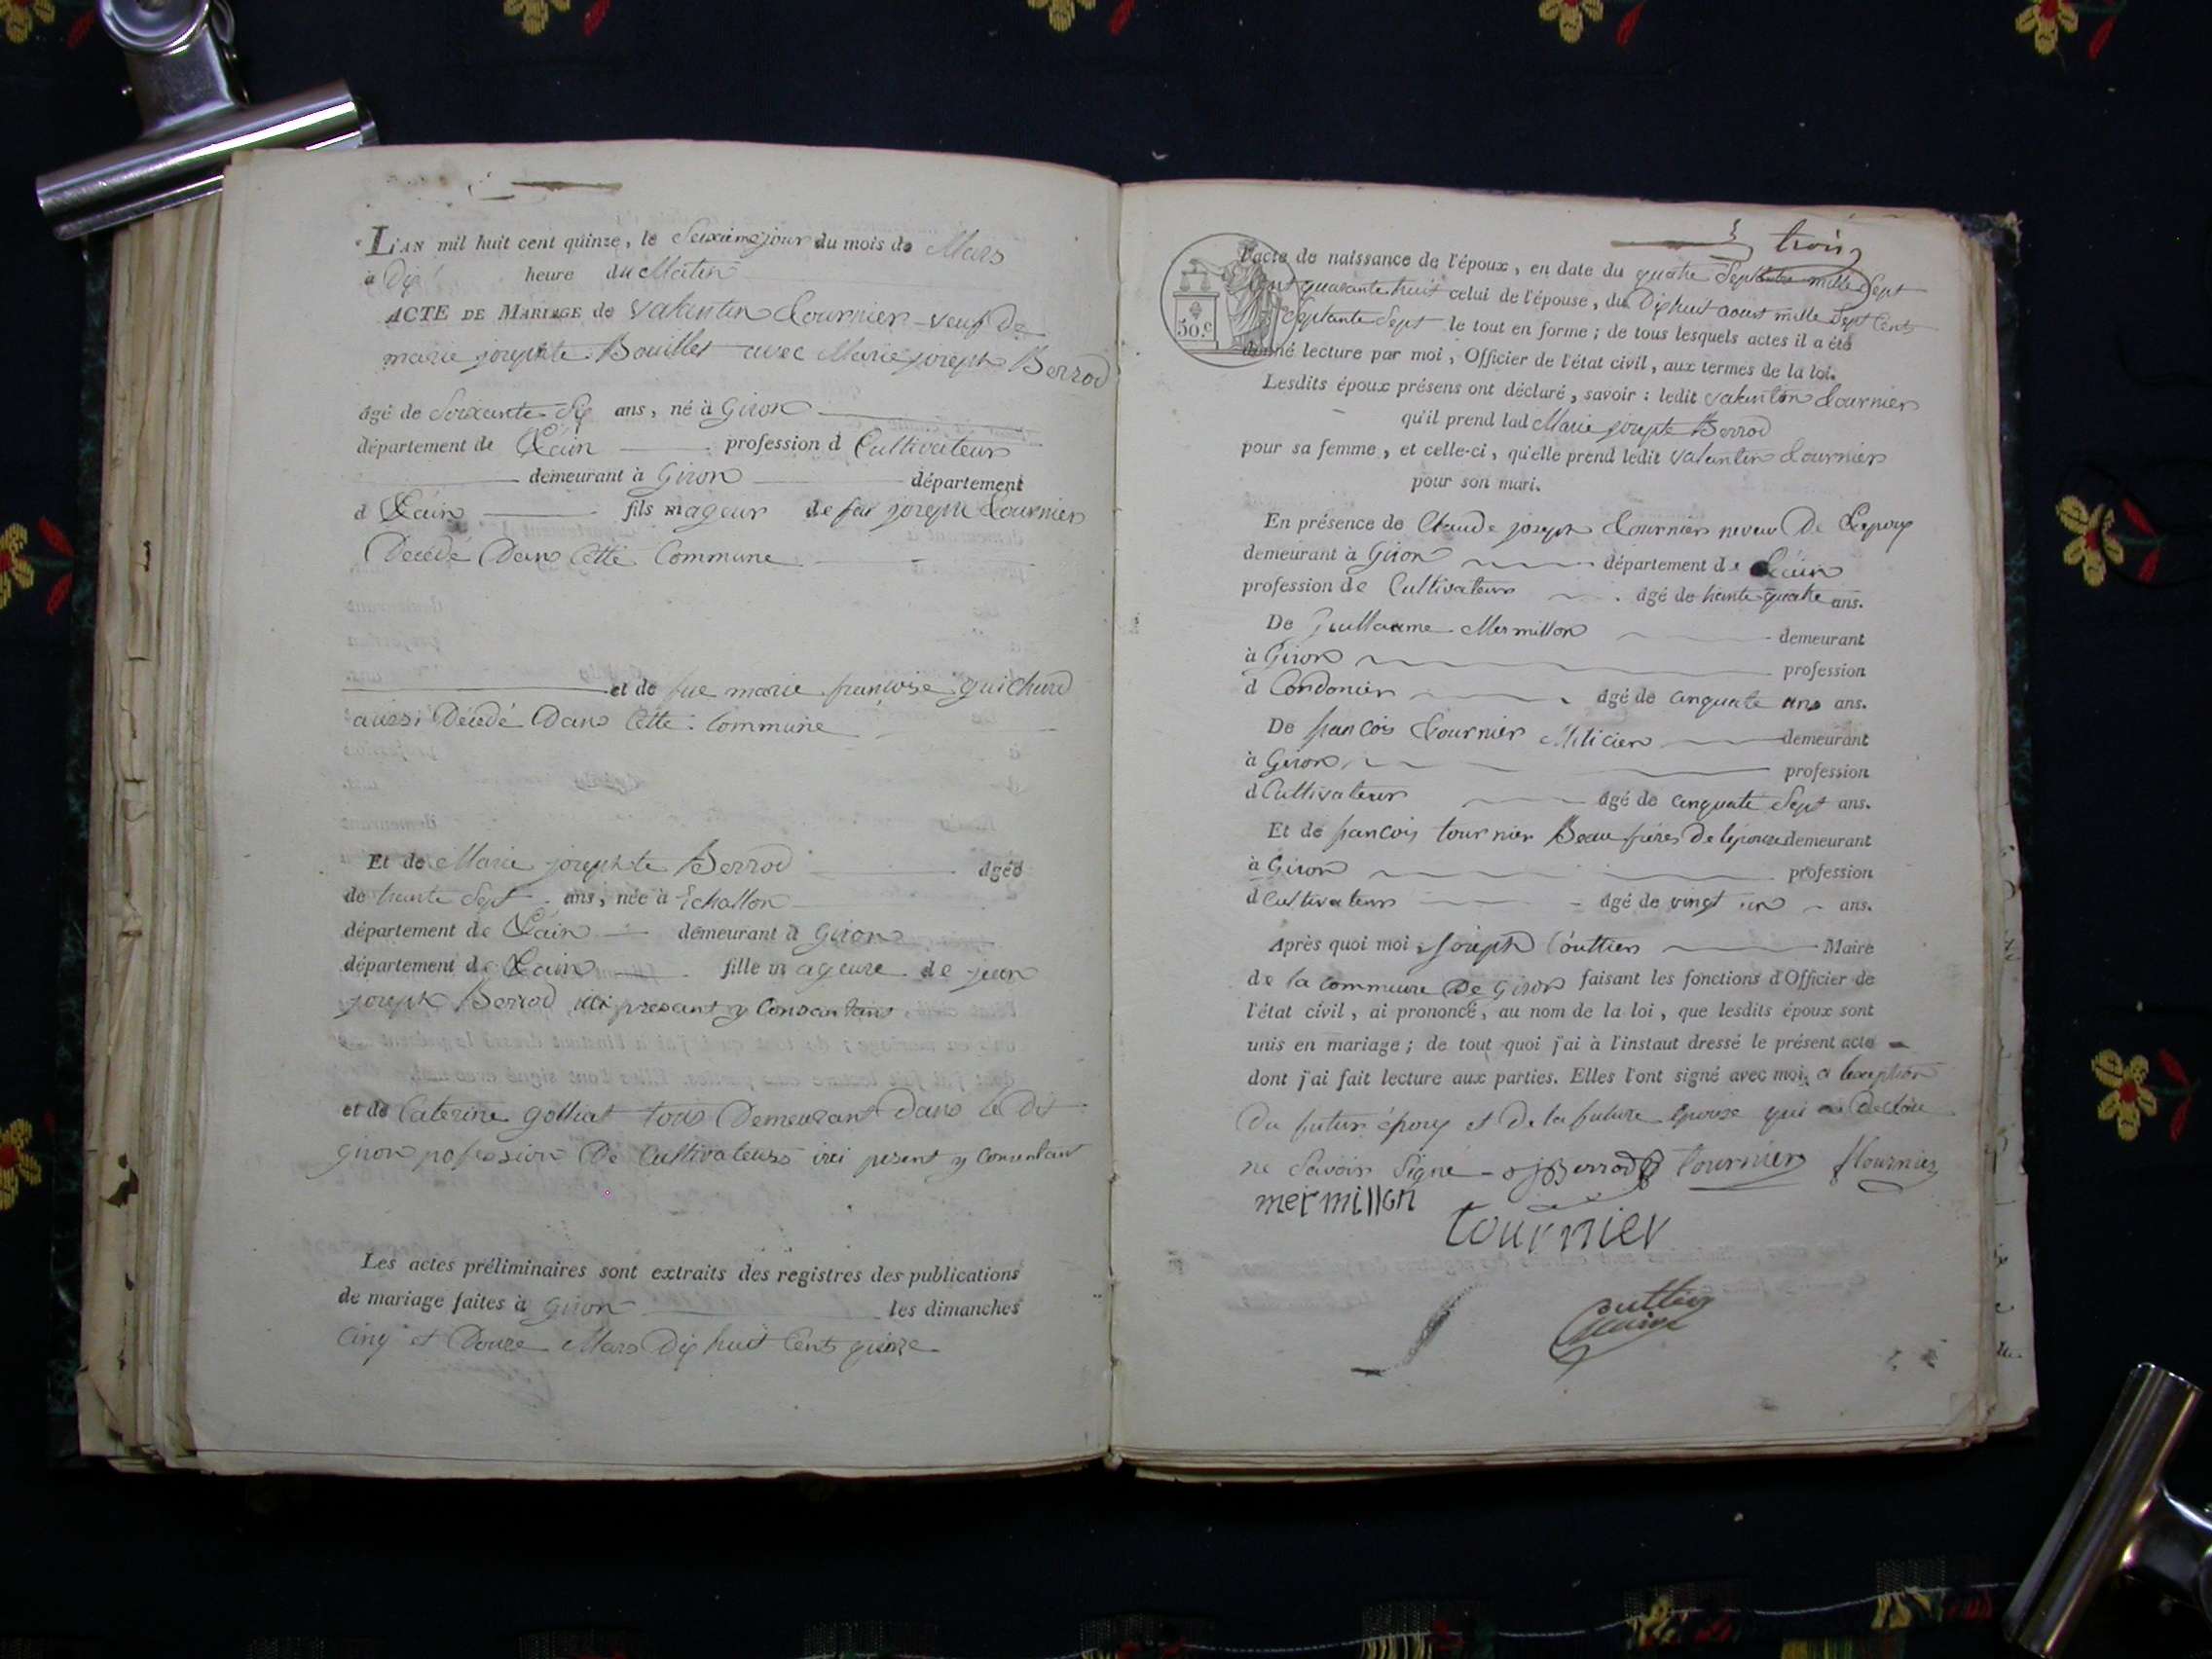 L'AN mil huit cent quinze, le Seixieme jour du mois de Mars
à Dix heure du Matin
ACTE DE MARIAGE de Valentin Tournier veuf De
marie josephte Bouillet avec Marie joseph Berrod
âgé de Soixante Six ans, né à Giron
département de L'ain profession d Cultivateur
demeurant à Giron département
d L'ain fils mageur de feu joseph Tournier
Decedé Dans Cette Commune
et de fue marie françoise guichard
aussi Décedé Dans Cette Commune
Et de Marie josephte Berrod âgée
de trante Sept ans, née à Echallon
département de L'ain demeurant à Giron
département de L'ain fille mageure de jean
joseph Berrod ici presant y Consantant
et de Caterine golliat tous Demeurant Dans le dit
giron profession De Cultivateurs ici present y Consentant
Les actes préliminaires sont extraits des registres des publications
de mariage faites à giron les dimanches
Cinq et Douze Mars Dix huit Cents quinze
3 trois
l'acte de naissance de l'époux, en date du quatre Septembre mille Sept
Cent quarante huit celui de l'épouse, du Dix huit aoust mille Sept Cents
Septante Sept le tout en forme ; de tous lesquels actes il a été
donné lecture par moi, Officier de l'état civil, aux termes de la loi.
50.c
Lesdits époux présens ont déclaré, savoir : ledit Valentin Tournier
qu'il prend lad Marie josephte Berrod
pour sa femme, et celle-ci, qu'elle prend ledit Valentin Tournier
pour son mari.
En présence de Claude joseph Tournier neveu De Lepoux
demeurant à Giron département de L'ain
profession de Cultivateur âgé de trante quatre ans.
De Guillaume Mermillon demeurant
à Giron profession
d Cordonier âgé de cinquate ans ans.
De francois Tournier Milicien demeurant
à Giron profession
d Cultivateur âgé de cinquate Sept ans.
Et de francois tournier Beau frères De lepouse demeurant
à Giron profession
d Cultivateur âgé de vingt un ans.
Après quoi moi joseph Coutties Maire
de la commune De Giron faisant les fonctions d'Officier de
l'état civil, ai prononcé, au nom de la loi, que lesdits époux sont
unis en mariage ; de tout quoi j'ai à l'instaut dressé le présent acte
dont j'ai fait lecture aux parties. Elles l'ont signé avec moi, a lexeption
Du futur époux et De la future épouse qui a Declaré
ne Savoir Signé jjBerrod Tournier ftournier
mermillon
tournier
Couttier
maire